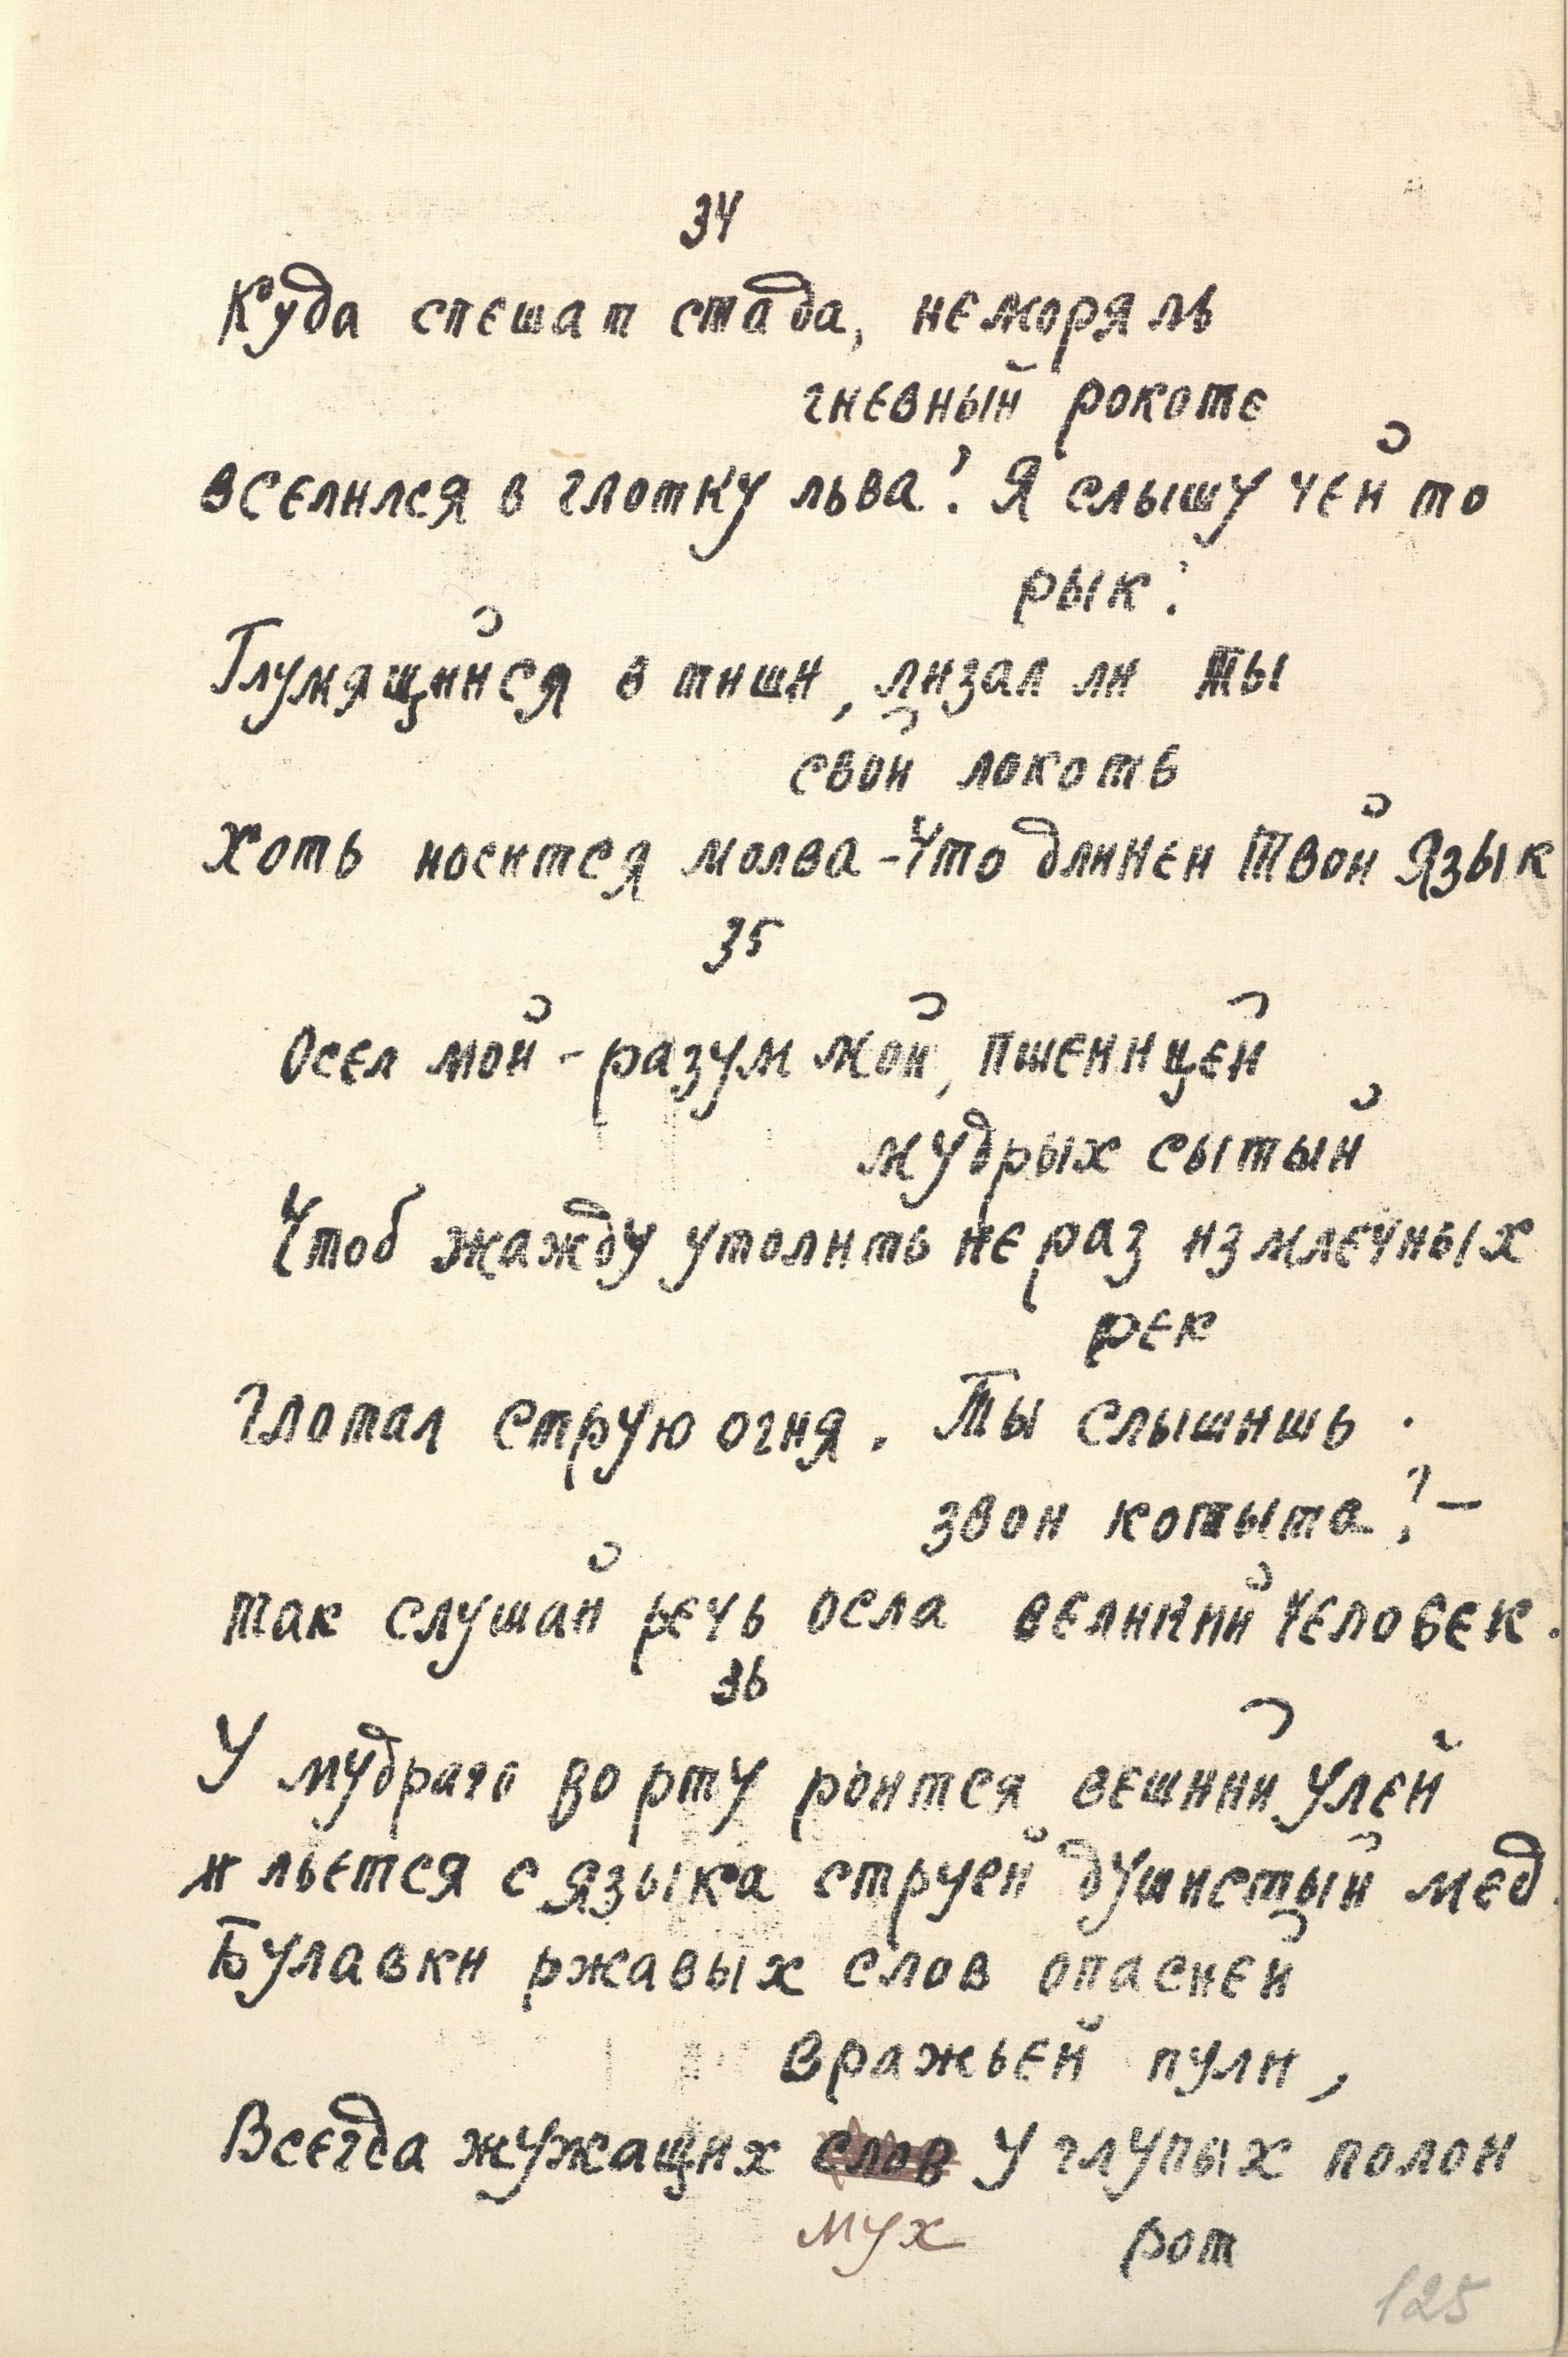 34
Куда спешат стада, не моря ль
гневный рокотъ
вселился в глотку льва? Я слышу чей то
рык:
Глумящийся в тиши, лизал ли ты
свой локоть
Хоть носится молва - Что длинен твой Язык
35
Осел мой - разум мой, пшеницей
мудрых сытый
Чтоб жажду утолить не раз из млечных
рек
Глотал струю огня. Ты слышишь
звон копыта? —
так слушай речь осла великий человек.
36
У мудраго во рту роится вешний улей
и льется с языка струей душистый мед.
Булавки ржавых слов опасней
вражьей пули,
Всегда жужащих слов у глупых полон
мух рот
125